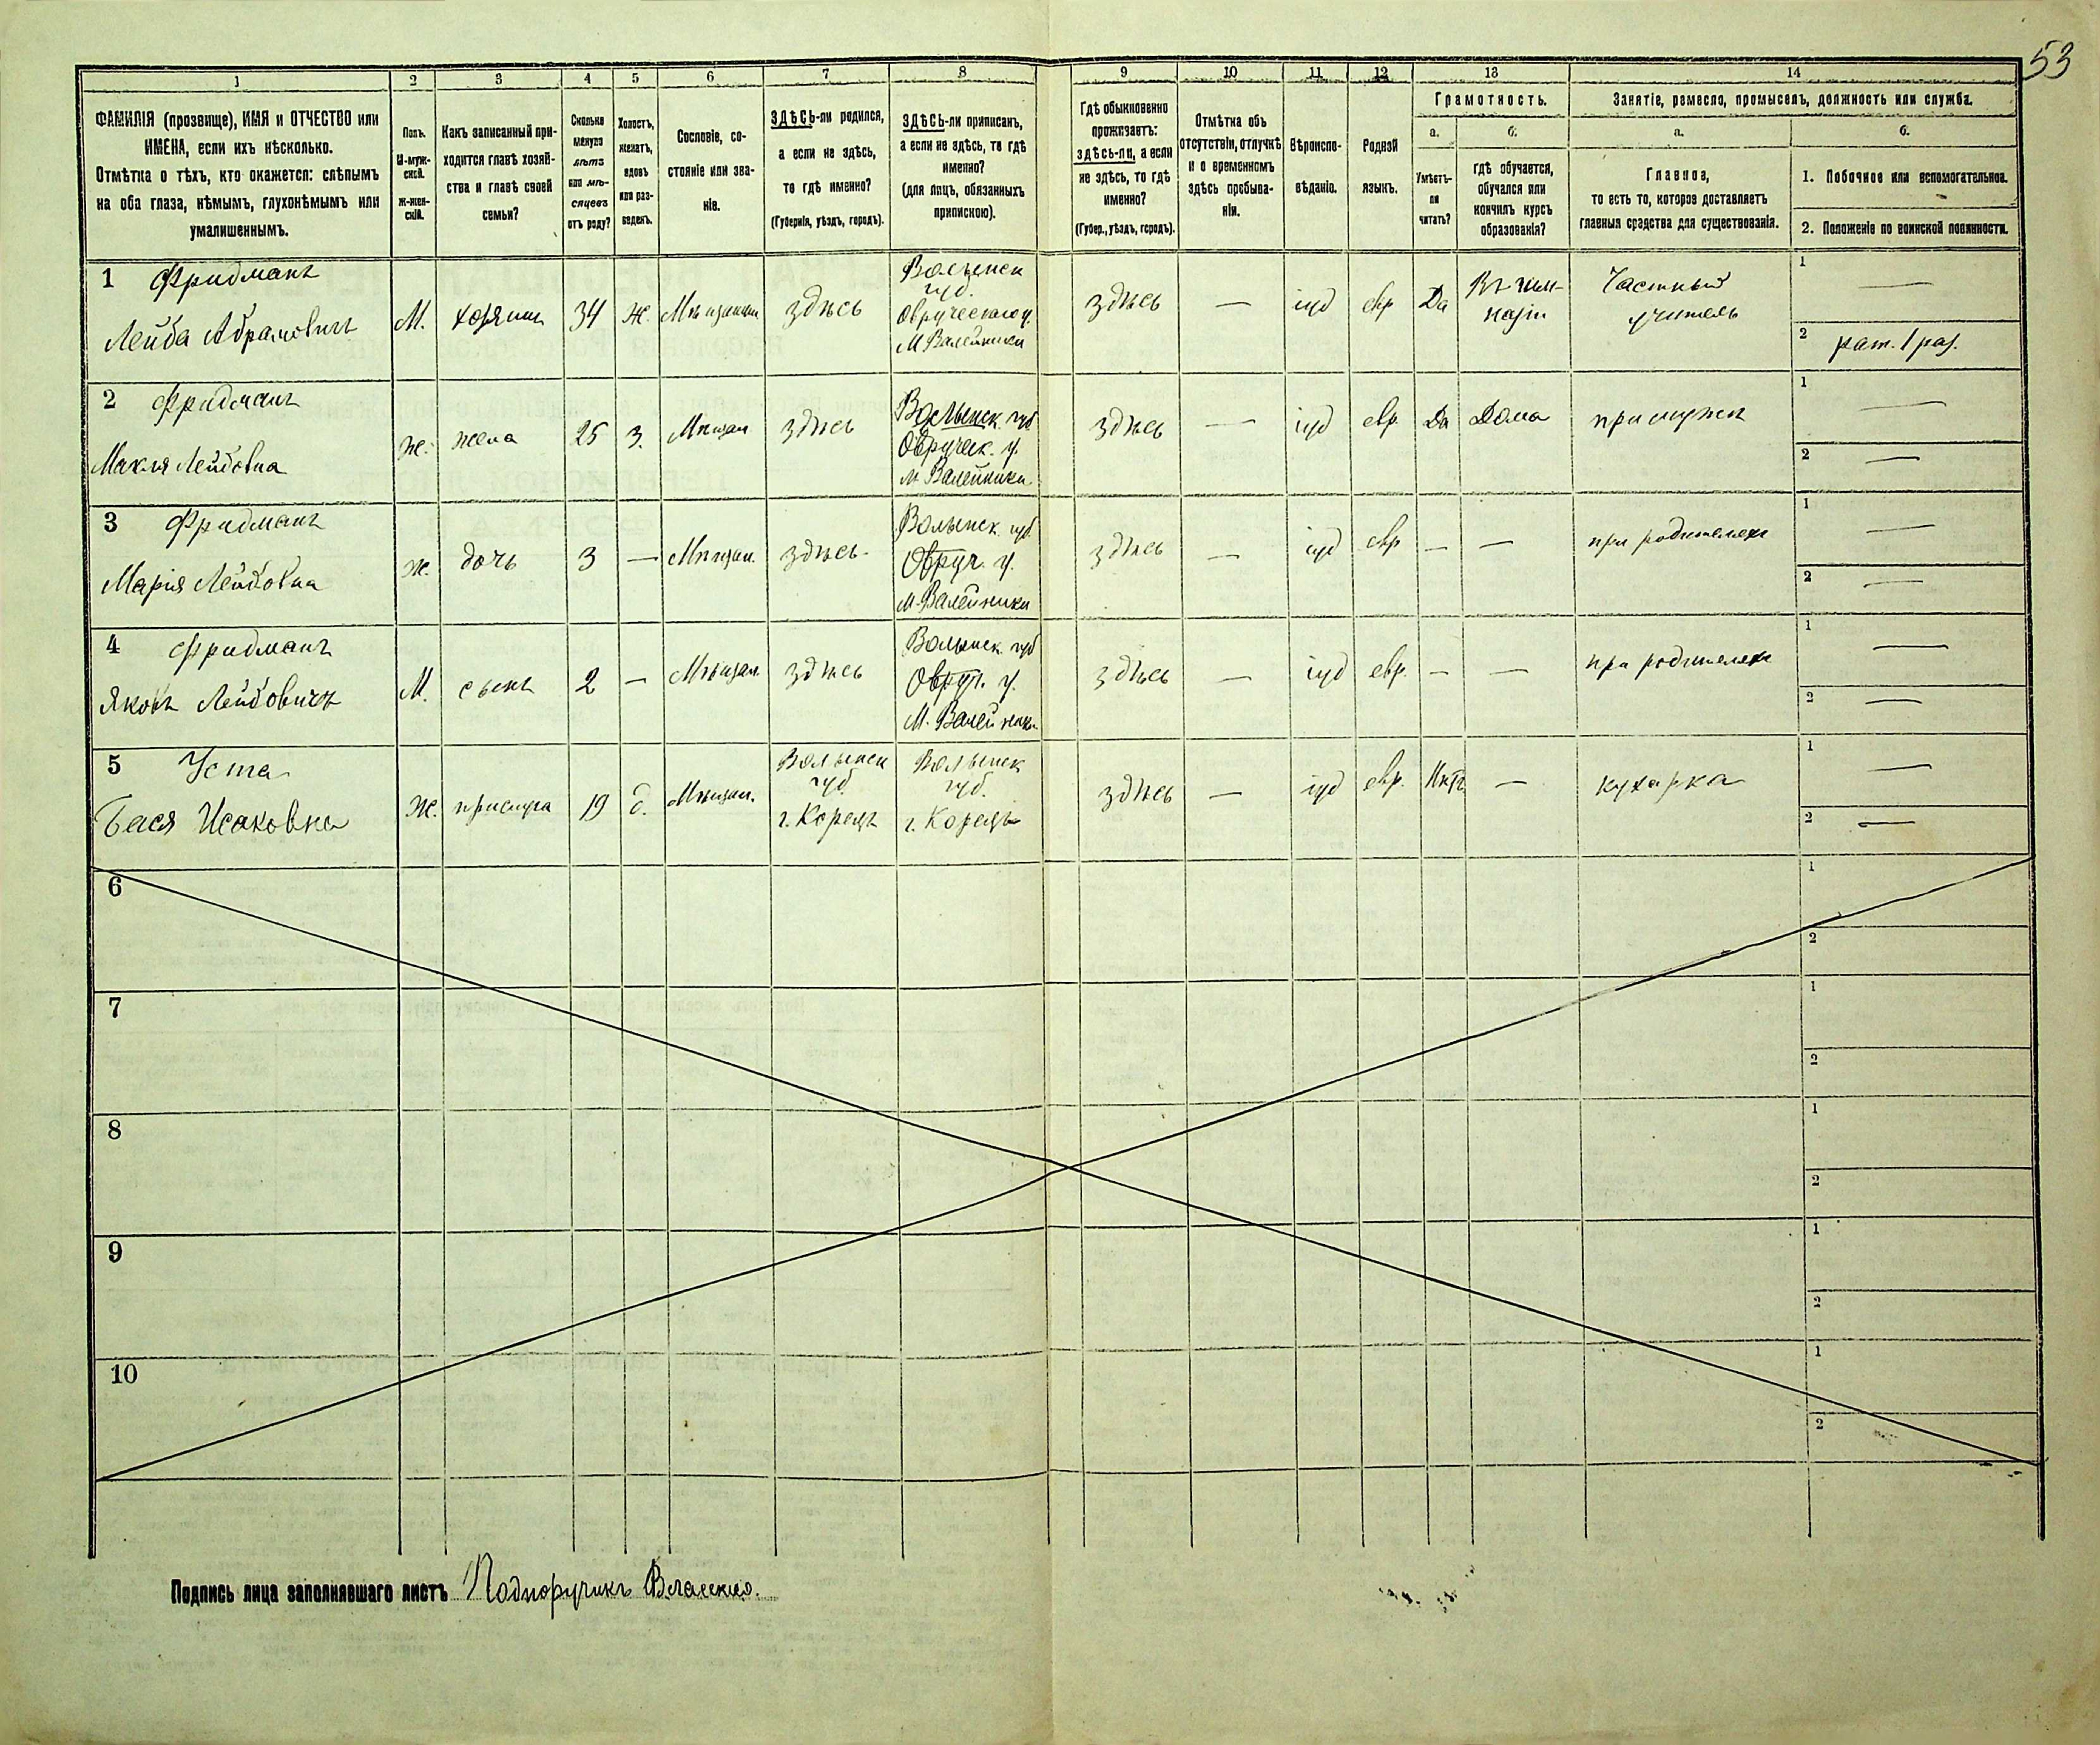 53
1 2 3 4 5 6 7 8 9 10 11 12 13 14
ФАМИЛІЯ (прозвище), ИМЯ и ОТЧЕСТВО или
ИМЕНА, если ихъ нѣсколько.
Отмѣтка о тѣхъ, кто окажется: слѣпымъ
на оба глаза, нѣмымъ, глухонѣмымъ или
умалишеннымъ.
Полъ.
М-муж-
ской.
Ж-жен-
скій.
Какъ записанный при-
ходится главѣ хозяй-
ства и главѣ своей
семьи?
Сколько
минуло
лѣтъ
или мѣ-
сяцевъ
отъ роду?
Холостъ,
женатъ,
вдовъ
или раз-
веденъ.
Сословіе, со-
стояніе или зва-
ніе.
ЗДѢСЬ-ли родился,
а если не здѣсь,
то гдѣ именно?
(Губернія, уѣздъ, городъ).
ЗДѢСЬ-ли приписанъ,
а если не здѣсь, то гдѣ
именно?
(для лицъ, обязанныхъ
припискою).
Гдѣ обыкновенно
проживаетъ:
здѣсь-ли, а если
не здѣсь, то гдѣ
именно?
(Губер., уѣздъ, городъ).
Отмѣтка объ
отсутствіи, отлучкѣ
и о временномъ
здѣсь пребыва-
ніи.
Вѣроиспо-
вѣданіе.
Родной
языкъ.
Грамотность.
а.
Умѣетъ-
ли
читать?
б.
Гдѣ обучается,
обучался или
кончилъ курсъ
образованія?
Занятіе, ремесло, промыселъ, должность или служба.
а.
Главное,
то есть то, которое доставляетъ
главныя средства для существованія.
б.
1. Побочное или вспомогательное.
2. Положеніе по воинской повинности.
1 Фридманъ
Лейба Абрамовичъ
М.
хозяинъ
34
ж.
Мѣщанинъ
здѣсь
Волынск
губ.
Овручскаго у.
М Валейники
здѣсь
—
іуд
евр
Да
Въ гим-
назіи
Частный
учитель
1 —
2 рат. 1 раз.
2 Фридманъ
Макля Лейбовна
ж.
жена
25
з.
Мѣщан
здѣсь
Волынск. губ
Овручск. у.
м Валейники
здѣсь
—
іуд
евр.
Да
Дома
при мужѣ
1 —
2 —
3 Фридманъ
Марія Лейбовна
ж.
дочь
3
—
Мѣщан.
здѣсь
Волынск. губ.
Овруч. у.
м. Валейники
здѣсь
—
іуд
евр
—
—
при родителяхъ
1 —
2 —
4 Фридманъ
Яковъ Лейбовичъ
М.
сынъ
2
—
Мѣщан.
здѣсь
Волынск. губ
Овруч. у.
М. Валейники
здѣсь
—
іуд
евр.
—
—
при родителяхъ
1 —
2 —
5 Уста
Бася Исаковна
Ж.
прислуга
19
д.
Мѣщан.
Волынск
губ.
г. Корецъ
Волынск
губ.
г. Корецъ
здѣсь
—
іуд
евр.
Нѣтъ
—
кухарка
1 —
2 —
6
1
2
7
1
2
8
1
2
9
1
2
10
1
2
Подпись лица заполнявшаго листъ Подпоручикъ